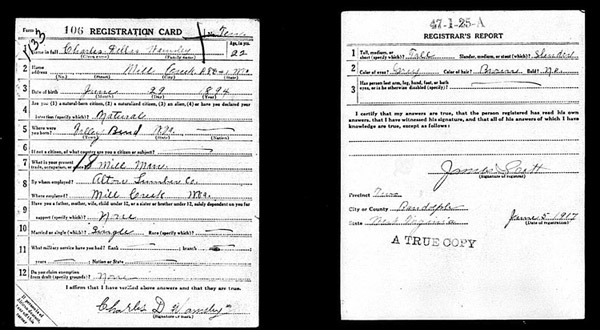 Form 1 106 REGISTRATION CARD
Name in full Charles Dellis Hamsley Age, in yrs. 22
(Given name) (Family name)
Home address Mill Creek
(No.) (Street) (City) (State)
Date of birth June 29 1894
(Month) (Day) (Year)
Are you (1) a natural-born citizen, (2) a naturalized citizen, (3) an alien, (4) or have you declared your
intention (specify which)? Natural
Where were
you born? Valley Bend
If not a citizen, of what country are you a citizen or subject?
What is your present
trade, occupation, or office? 18 Mill Man
By whom employed? Alton Lumber Co.
Where employed? Mill Creek W.Va.
Have you a father, mother, wife, child under 12, or a sister or brother under 12, solely dependent on you for
support (specify which)? None
Married or single (which)? Single Race (specify which)?
What military service have you had? Rank branch
years Nation or State
Do you claim exemption
from draft (specify grounds)? None
I affirm that I have verified above answers and that they are true.
Charles D Hamsley
(Signature or mark)
47-1-25-A
REGISTRAR'S REPORT
1 Tall, medium, or short (specify which)? Tall Slender, medium, or stout (which)? Slender
2 Color of eyes? Gray Color of hair? Brown Bald? No
3 Has person lost arm, leg, hand, foot, or both
eyes, or is he otherwise disabled (specify)?
I certify that my answers are true, that the person registered has read his own
answers, that I have witnessed his signature, and that all of his answers of which I have
knowledge are true, except as follows:
James Scott
(Signature of registrar)
Precinct Two
City or County Randolph
State West Virginia June 5, 1917
(Date of registration)
A TRUE COPY